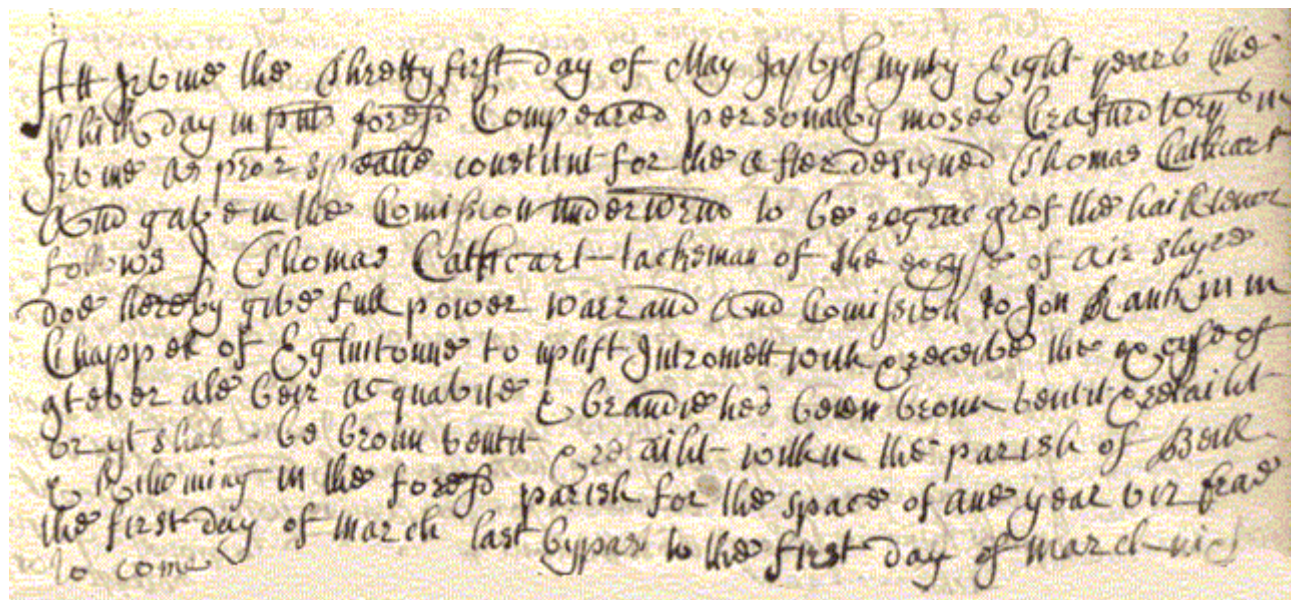 Att Irvine the Thretty first day of May Jajvjcl nynty Eight years the
Which day in pns foresd Compeared personally moses Crafurd wryr in
Irvine as pror speallie constitut for the afterdesigned Thomas Cathcart
And gave in the Comission underwrin to be regrat qrof the haill tenor
follows I Thomas Cathcart tacksman of the excyse of air shyre
doe hereby give full power warrand and Comission to Jon Rankin in
Chappel of Eglintoune to uplift Intromett with & receive the excyse of
qtever ale beir acquavite & brandie hes beien broun ventit & retailit
or yt shall be broun ventit & retailit within the parish of Beith
& in the foresd parish for the space of ane year viz frae
the first day of march last bypast to the first day of march nixt
to come